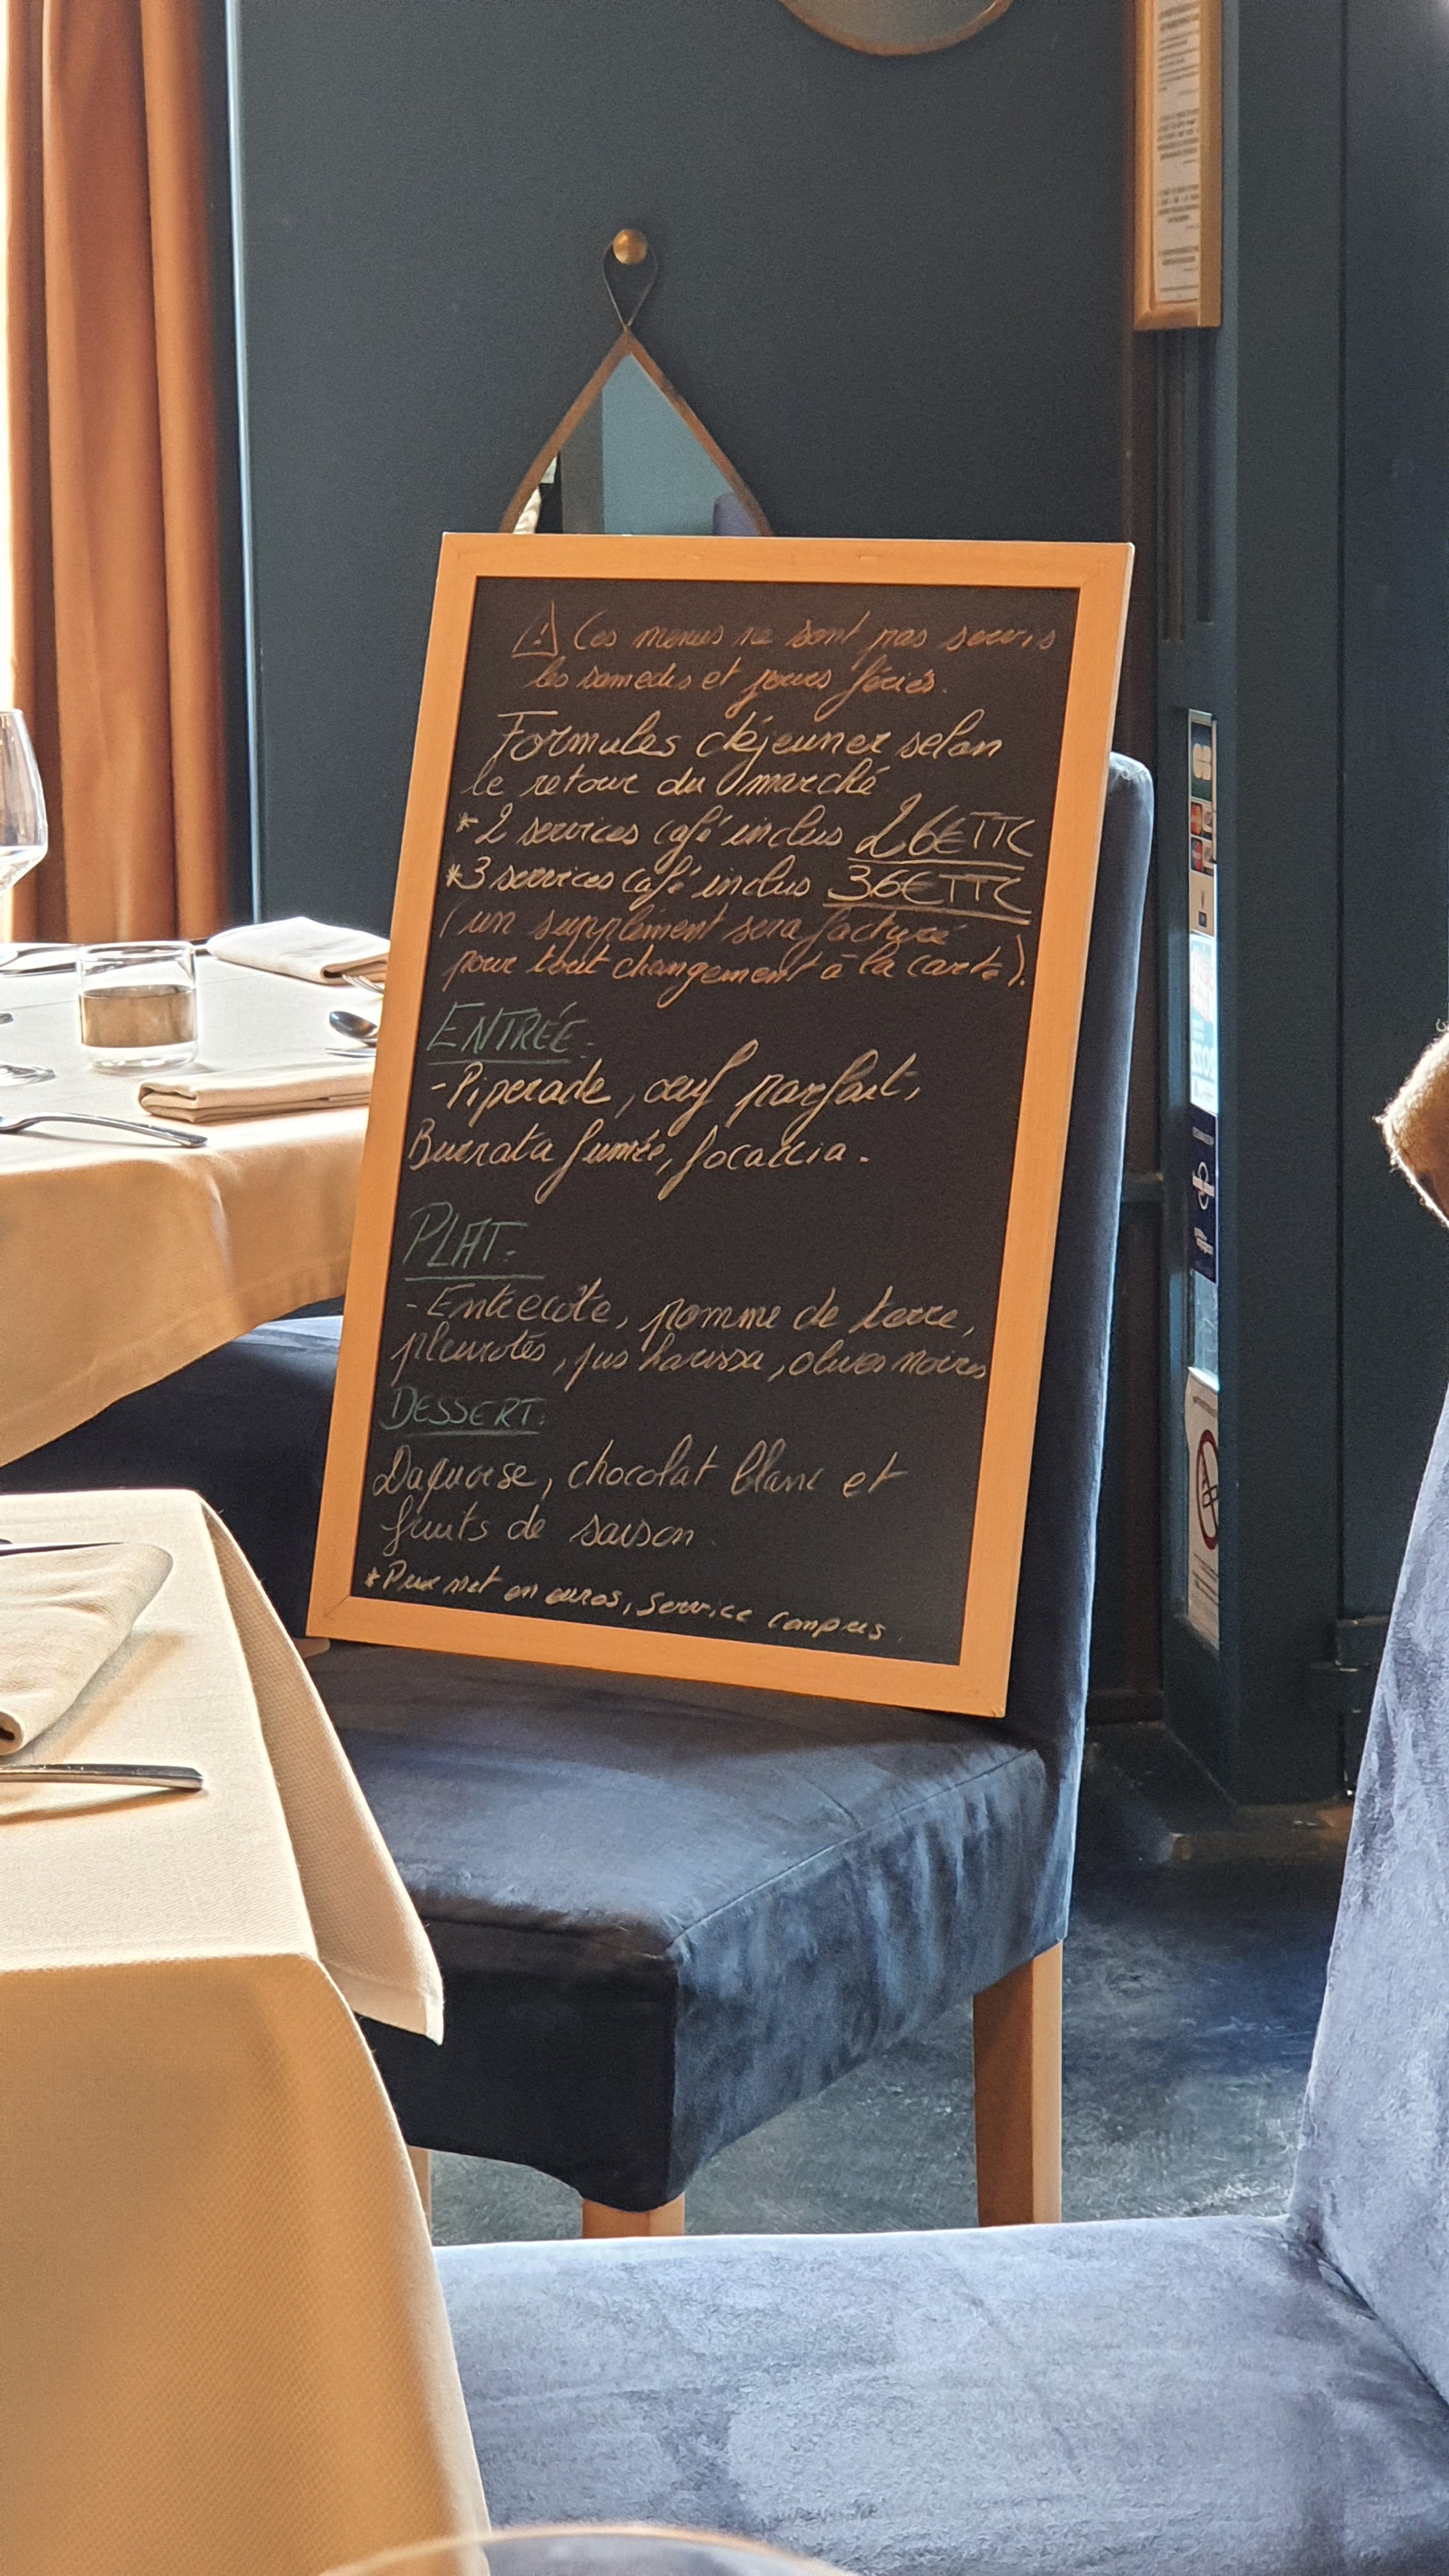 ⚠ Ces menus ne sont pas servis
les samedis et jours fériés.
Formules déjeuner selon
le retour du marché
*2 services café inclus 26€TTC
*3 services café inclus 36€TTC
(un supplément sera facturé
pour tout changement à la carte).
ENTRÉE:
-Piperade, œuf parfait,
Burrata fumée, focaccia.
PLAT:
-Entrecôte, pomme de terre,
pleurotes, jus harissa, olives noires
DESSERT:
Daquoise, chocolat blanc et
fruits de saison
*Prix net en euros, Service compris.